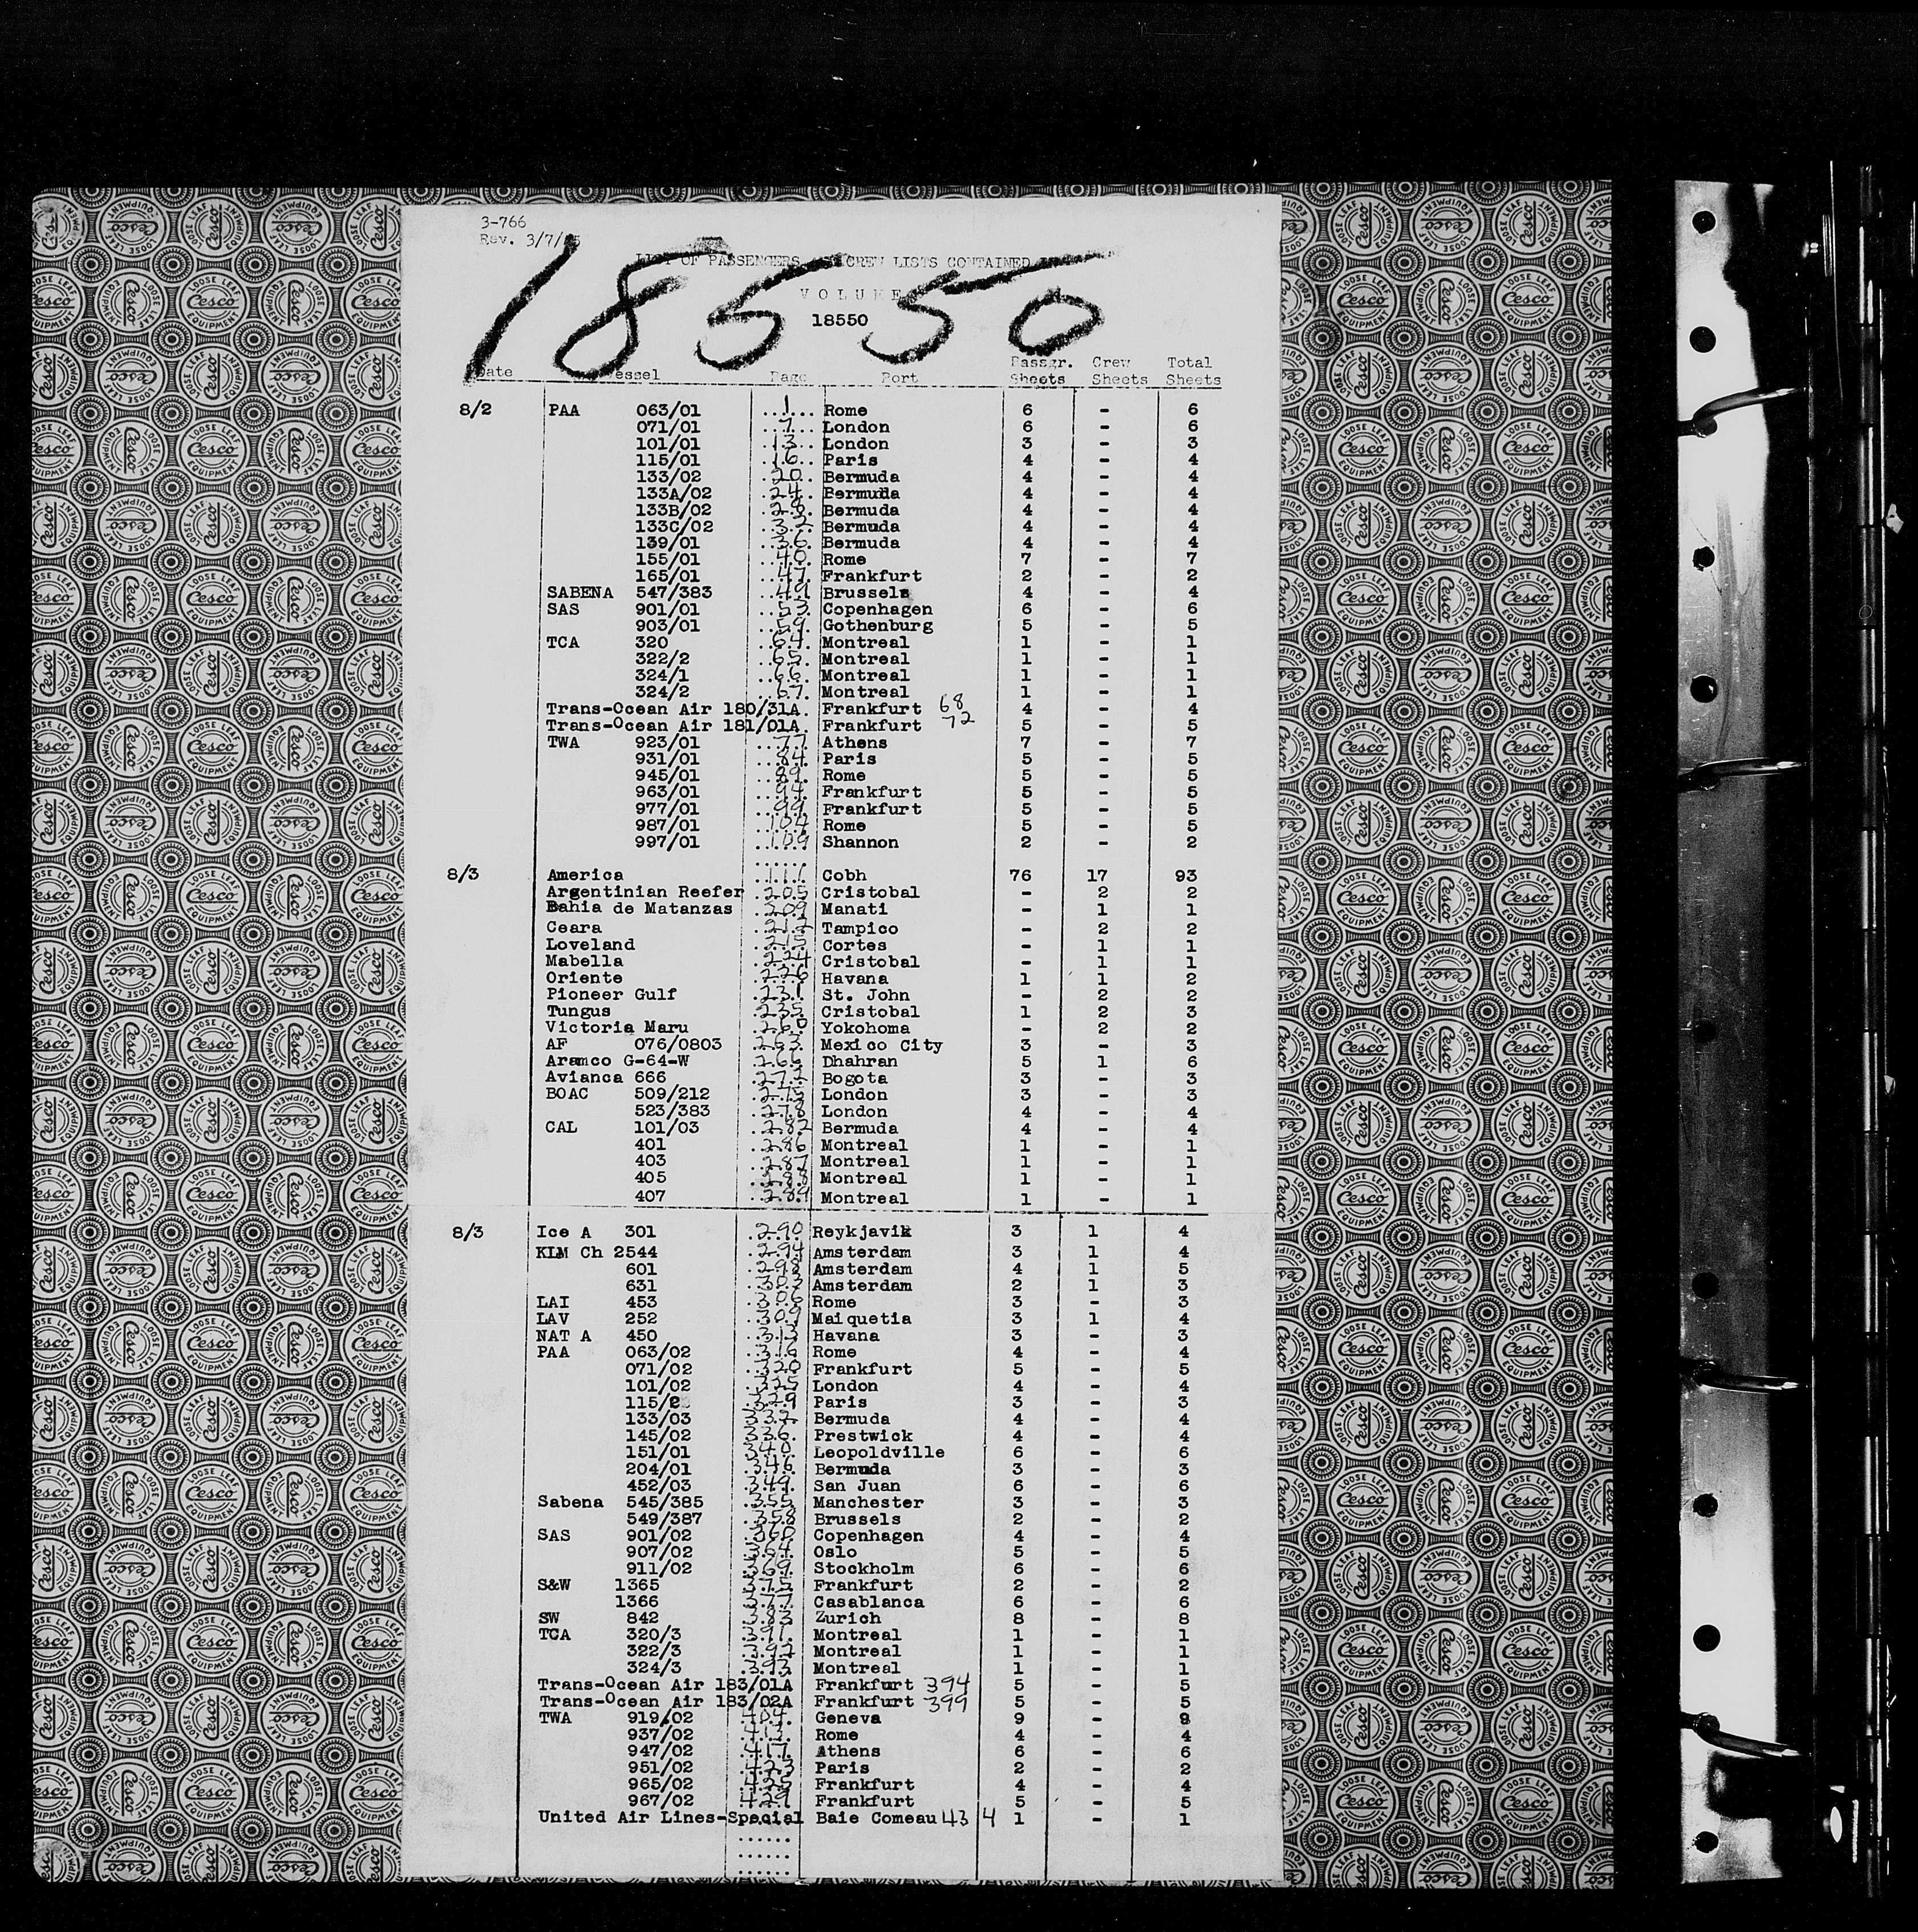 3-766
Rev. 3/7/
LIST OF PASSENGERS CREW LISTS CONTAINED
VOLUME
18550
18550
Date Vessel Page Port Passgr. Sheets Crew Sheets Total Sheets
8/2 PAA 063/01 1 Rome 6 - 6
071/01 7 London 6 - 6
101/01 13 London 3 - 3
115/01 16 Paris 4 - 4
133/02 20 Bermuda 4 - 4
133A/02 24 Bermuda 4 - 4
133B/02 28 Bermuda 4 - 4
133C/02 32 Bermuda 4 - 4
139/01 36 Bermuda 4 - 4
155/01 40 Rome 7 - 7
165/01 47 Frankfurt 2 - 2
SABENA 547/383 49 Brussels 4 - 4
SAS 901/01 53 Copenhagen 6 - 6
903/01 59 Gothenburg 5 - 5
TCA 320 64 Montreal 1 - 1
322/2 65 Montreal 1 - 1
324/1 66 Montreal 1 - 1
324/2 67 Montreal 1 - 1
Trans-Ocean Air 180/31A Frankfurt 68 4 - 4
Trans-Ocean Air 181/01A Frankfurt 72 5 - 5
TWA 923/01 77 Athens 7 - 7
931/01 84 Paris 5 - 5
945/01 89 Rome 5 - 5
963/01 94 Frankfurt 5 - 5
977/01 99 Frankfurt 5 - 5
987/01 104 Rome 5 - 5
997/01 109 Shannon 2 - 2
8/3 America 111 Cobh 76 17 93
Argentinian Reefer 205 Cristobal - 2 2
Bahia de Matanzas 209 Manati - 1 1
Ceara 212 Tampico - 2 2
Loveland 215 Cortes - 1 1
Mabella 224 Cristobal - 1 1
Oriente 226 Havana 1 1 2
Pioneer Gulf 231 St. John - 2 2
Tungus 235 Cristobal 1 2 3
Victoria Maru 260 Yokohoma - 2 2
AF 076/0803 263 Mexico City 3 - 3
Aramco G-64-W 266 Dhahran 5 1 6
Avianca 666 272 Bogota 3 - 3
BOAC 509/212 275 London 3 - 3
523/383 278 London 4 - 4
CAL 101/03 282 Bermuda 4 - 4
401 286 Montreal 1 - 1
403 287 Montreal 1 - 1
405 288 Montreal 1 - 1
407 289 Montreal 1 - 1
8/3 Ice A 301 290 Reykjavik 3 1 4
KLM Ch 2544 294 Amsterdam 3 1 4
601 298 Amsterdam 4 1 5
631 303 Amsterdam 2 1 3
LAI 453 306 Rome 3 - 3
LAV 252 309 Maiquetia 3 1 4
NAT A 450 313 Havana 3 - 3
PAA 063/02 316 Rome 4 - 4
071/02 320 Frankfurt 5 - 5
101/02 325 London 4 - 4
115/2 329 Paris 3 - 3
133/03 332 Bermuda 4 - 4
145/02 336 Prestwick 4 - 4
151/01 340 Leopoldville 6 - 6
204/01 346 Bermuda 3 - 3
452/03 349 San Juan 6 - 6
Sabena 545/385 355 Manchester 3 - 3
549/387 358 Brussels 2 - 2
SAS 901/02 360 Copenhagen 4 - 4
907/02 364 Oslo 5 - 5
911/02 369 Stockholm 6 - 6
S&W 1365 375 Frankfurt 2 - 2
1366 377 Casablanca 6 - 6
SW 842 383 Zurich 8 - 8
TCA 320/3 391 Montreal 1 - 1
322/3 392 Montreal 1 - 1
324/3 393 Montreal 1 - 1
Trans-Ocean Air 183/01A Frankfurt 394 5 - 5
Trans-Ocean Air 183/02A Frankfurt 399 5 - 5
TWA 919/02 404 Geneva 9 - 9
937/02 413 Rome 4 - 4
947/02 417 Athens 6 - 6
951/02 423 Paris 2 - 2
965/02 425 Frankfurt 4 - 4
967/02 429 Frankfurt 5 - 5
United Air Lines-Special Baie Comeau 434 1 - 1
Cesco
LOOSE LEAF
EQUIPMENT